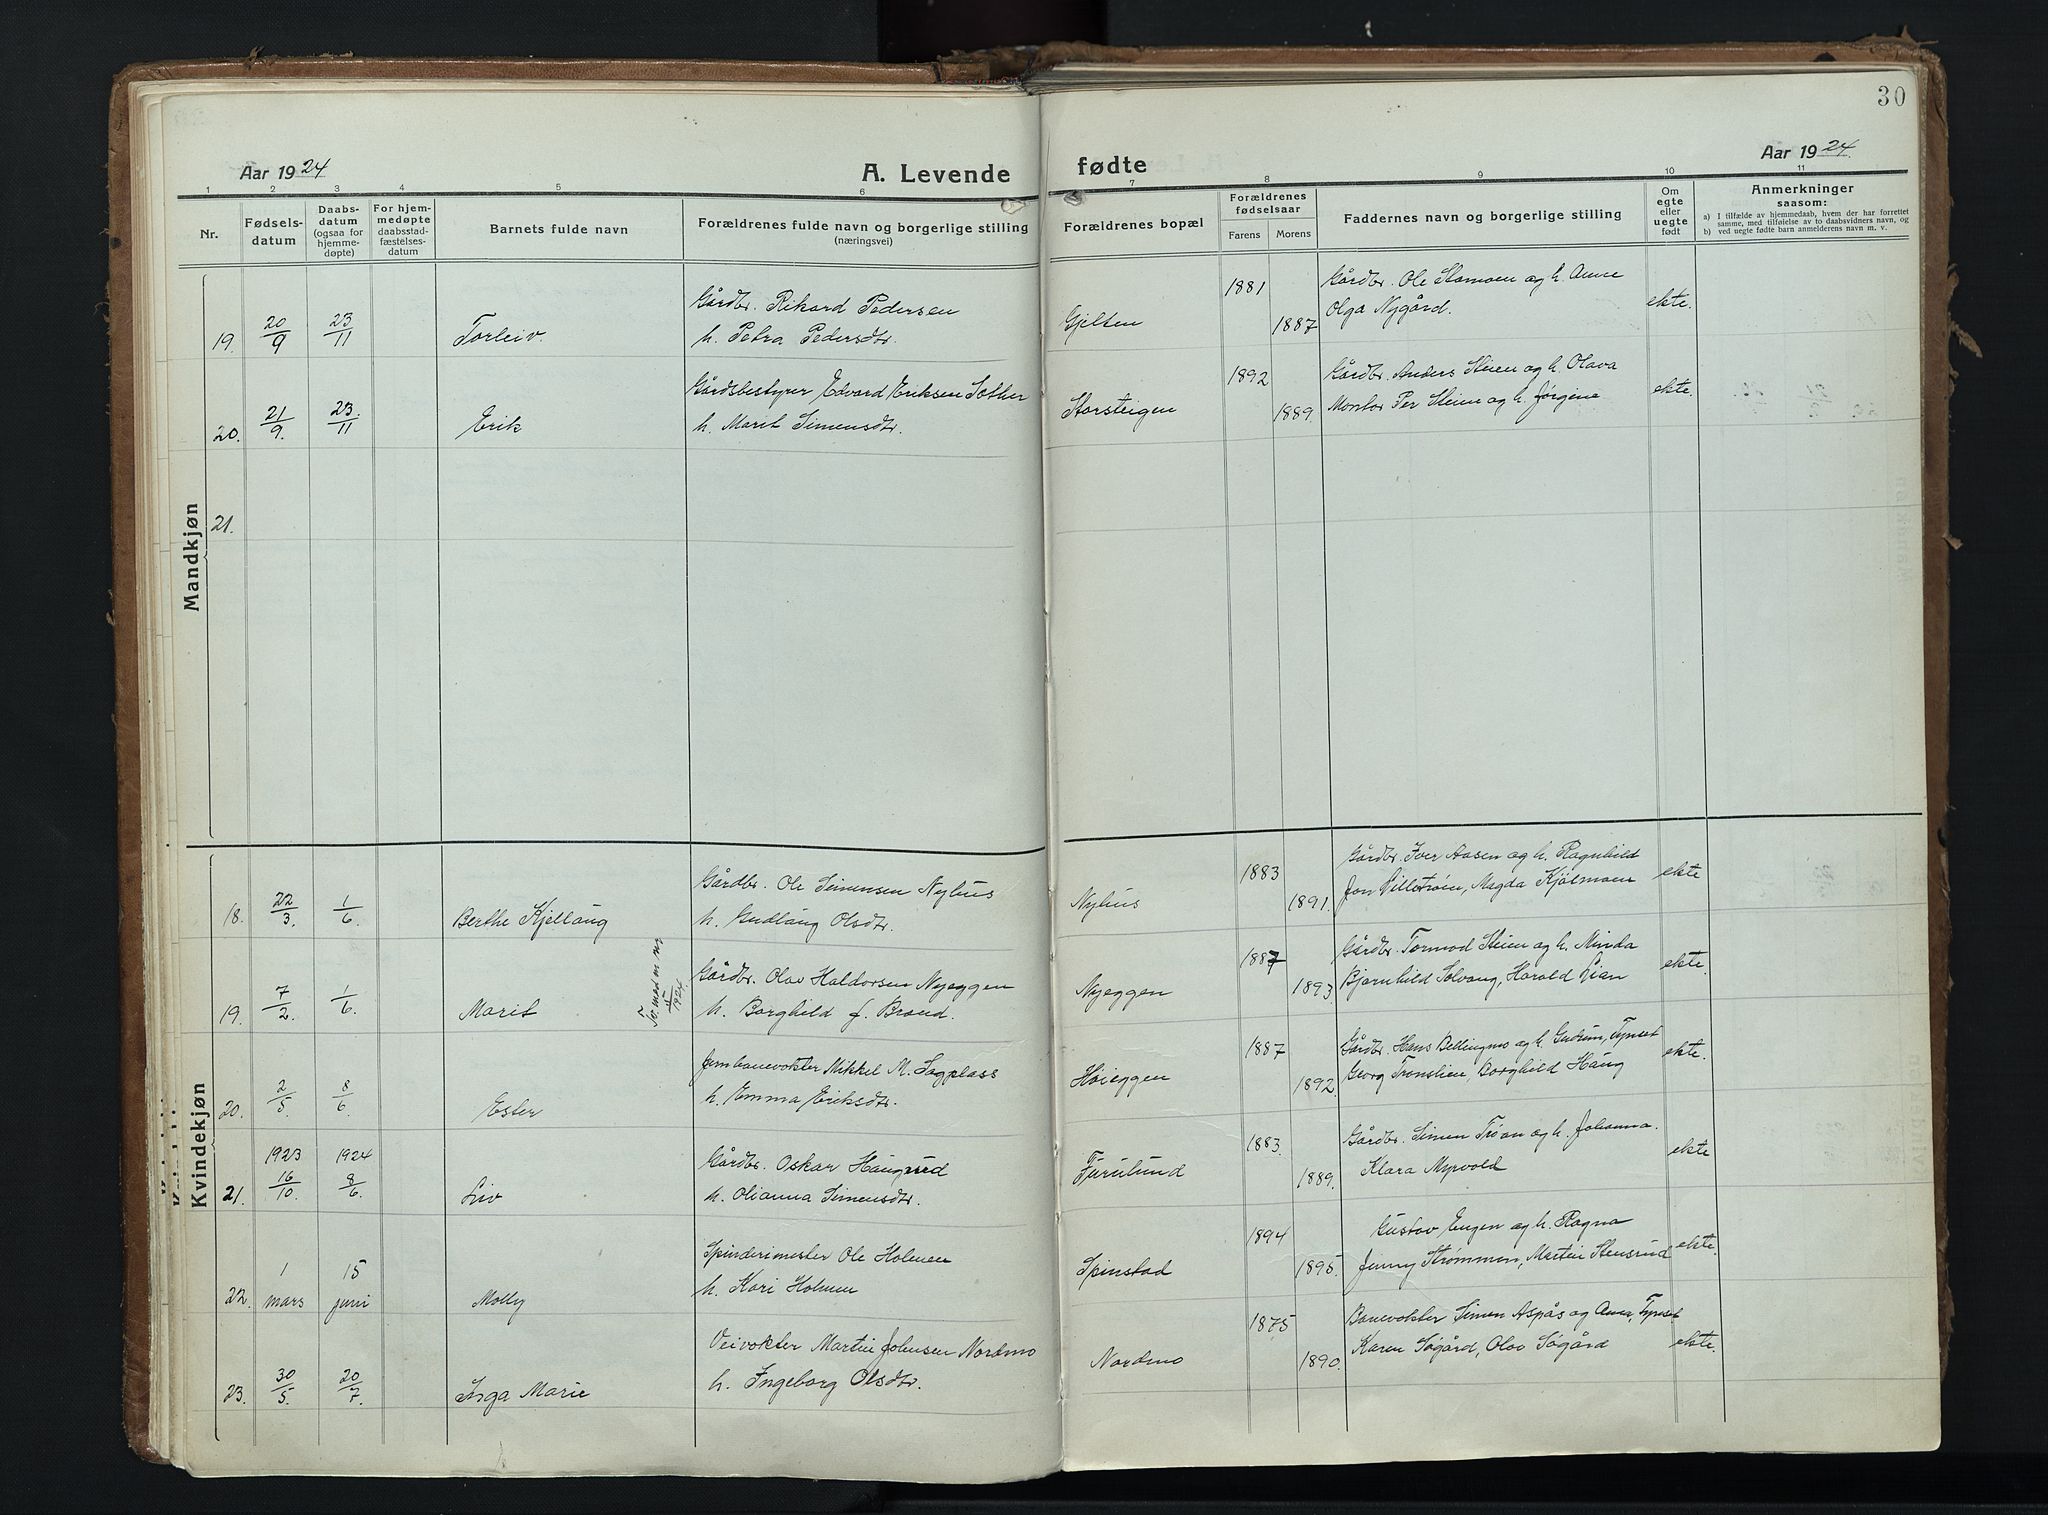 30
Aar 1924
A. Levende fødte
Aar 1924.
1 2 3 4 5 6 7 8 9 10 11
Nr.
Fødselsdatum
Daabsdatum (ogsaa for hjemmedøpte)
For hjemmedøpte daabsstadfæstelsesdatum
Barnets fulde navn
Forældrenes fulde navn og borgerlige stilling (næringsvei)
Forældrenes bopæl
Forældrenes fødselsaar
Farens Morens
Faddernes navn og borgerlige stilling
Om egte eller uegte født
Anmerkninger saasom:
a) I tilfælde av hjemmedaab, hvem der har forrettet samme, med tilføielse av to daabsvidners navn, og
b) ved uegte fødte barn anmelderens navn m. v.
Mandkjøn
19. 20/9 23/11 Torleiv. Gårdbr. Rikard Pedersen
h. Petra Pedersdtr.
Gjelten 1881 1887 Gårdbr. Ole Stomoen og h. Anne
Olga Nygård. ekte.
20. 21/9. 23/11 Erik Gårdsbestyrer Edvard Eriksen Sæther
h. Marit Simensdtr.
Storsteigen 1892 1889. Gårdbr. Anders Steien og h. Olava
Montør Per Steien og h. Jørgine ekte.
21.
Kvindekjøn
18. 22/3. 1/6 Berthe Kjellaug Gårdbr. Ole Simensen Nyhus
h. Gudlaug Olsdtr.
Nyhus 1883 1891. Gårdbr. Iver Aasen og h. Ragnhild
Jon Lillestrøm, Magda Kjølmoen ekte
19. 7/2. 1/6. Marit Gårdbr. Olav Haldorsen Nyeggen
h. Borghild f. Brand.
1924.
Nyeggen 1887 1893 Gårdbr. Tormod Steien og h. Minda
Bjørnhild Solvang, Harald Lian ekte.
20. 2/5. 8/6 Ester Jernbanevokter Mikkel M. Sagplass
h. Emma Eriksdtr.
Høieggen 1887 1892. Gårdbr. Hans Bellingmo og h. Gudrun, Tynset
Georg Tronslien, Borghild Haug ekte.
21. 1923 16/10. 1924 8/6. Liv Gårdbr. Oskar Haugerud
h. Olianna Simensdtr.
Furulund 1883. 1889. Gårdbr. Simen Trøan og h. Johanna.
Klara Myrvold ekte
22. 1 mars 15 juni Molly Spinderimester Ole Holmen
h. Kari Holmen
Spinstad 1894 1895. Gustav Engen og h. Ragna
Jenny Strømmen, Martin Stensrud ekte.
23. 30/5. 20/7. Inga Marie Veivokter Martin Johnsen Nordmo
h. Ingeborg Olsdtr.
Nordmo 1875 1890. Banevokter Simen Aspås og Anna, Tynset
Karen Søgård, Olav Søgård ekte.